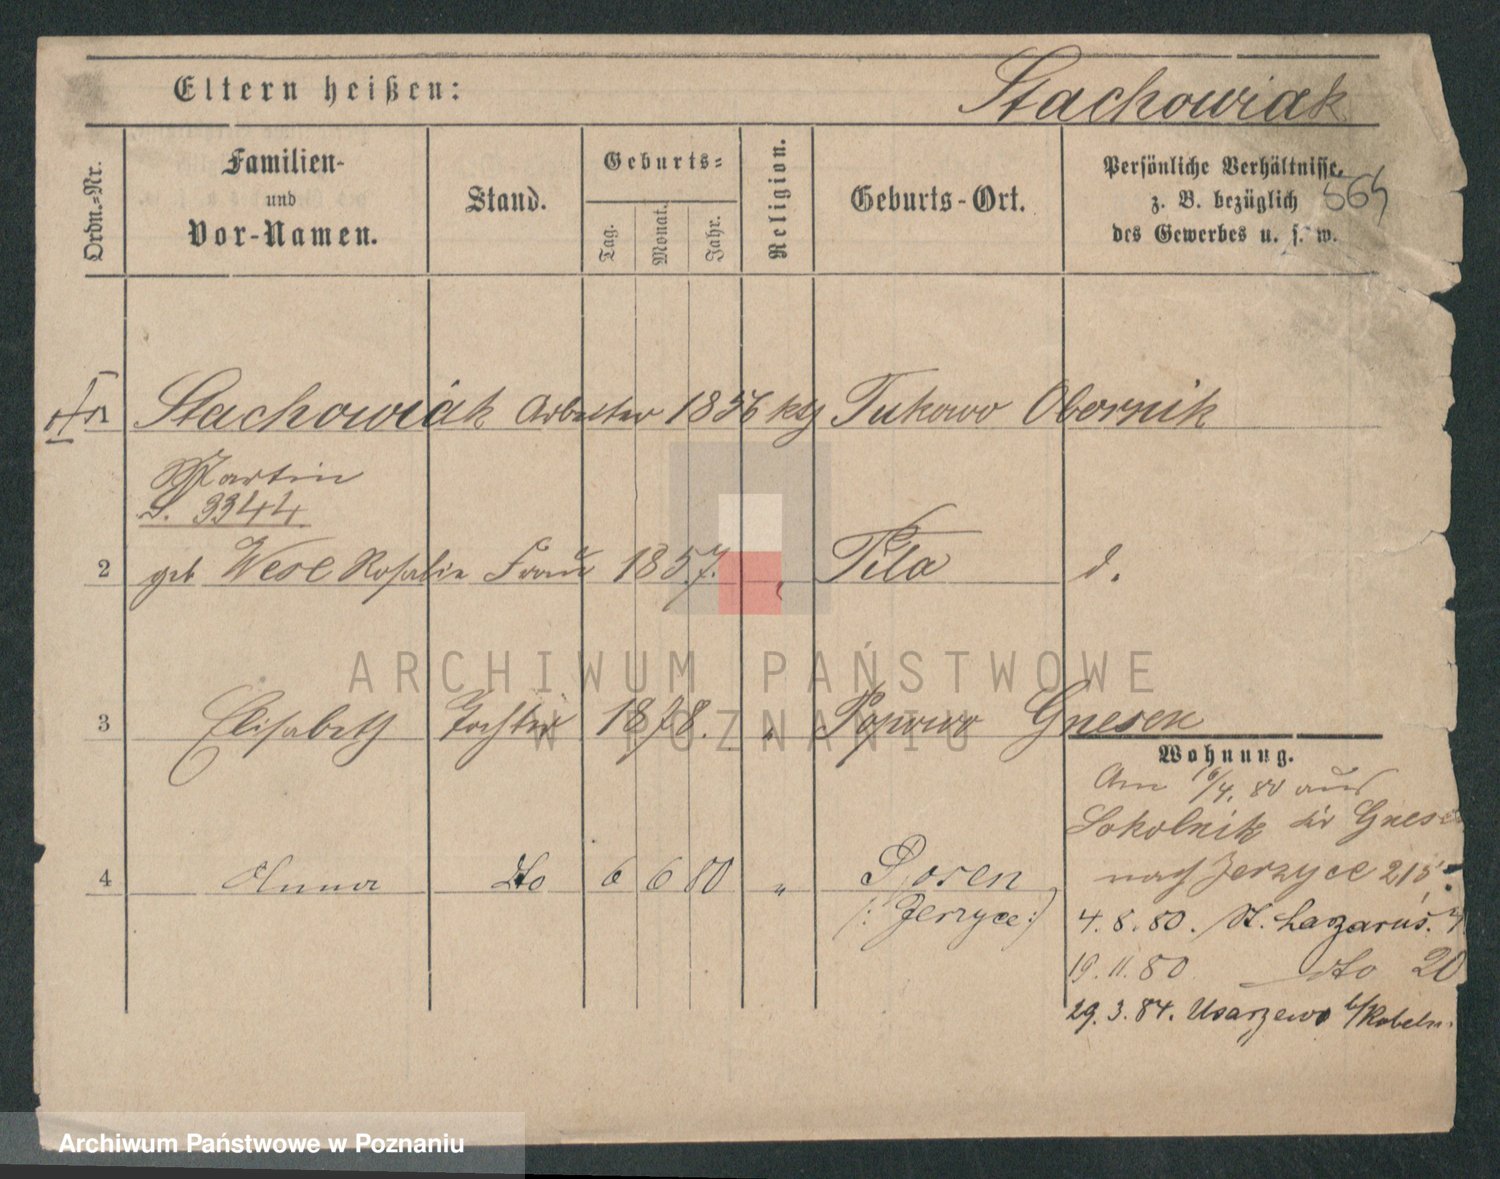 Eltern heißen:
Stachowiak
Ordn.-Nr.
Familien-
und
Vor-Namen.
Stand.
Geburts-
Tag.
Monat.
Jahr.
Religion.
Geburts-Ort.
Persönliche Verhältnisse,
z. B. bezüglich
des Gewerbes u. s. w.
565
Stachowiak Arbeiter 1856 kth Tukowo Obornik
Martin
S. 3344
2 geb Wese Rosalie Frau 1857. " Pila d.
3 Elisabeth Tochter 1878. " Popowo Gnesen
Wohnung.
Am 16/4. 80 aus
Sokolnik Kr Gnesen
nach Jerzyce 215.
4 Anna do 6 6 80 " Posen
(: Jerzyce :)
4. 8. 80. St. Lazarus.
19. 11. 80 do 20
29. 3. 84. Usarzewo b/Kobeln.
ARCHIWUM PAŃSTWOWE
W POZNANIU
Archiwum Państwowe w Poznaniu